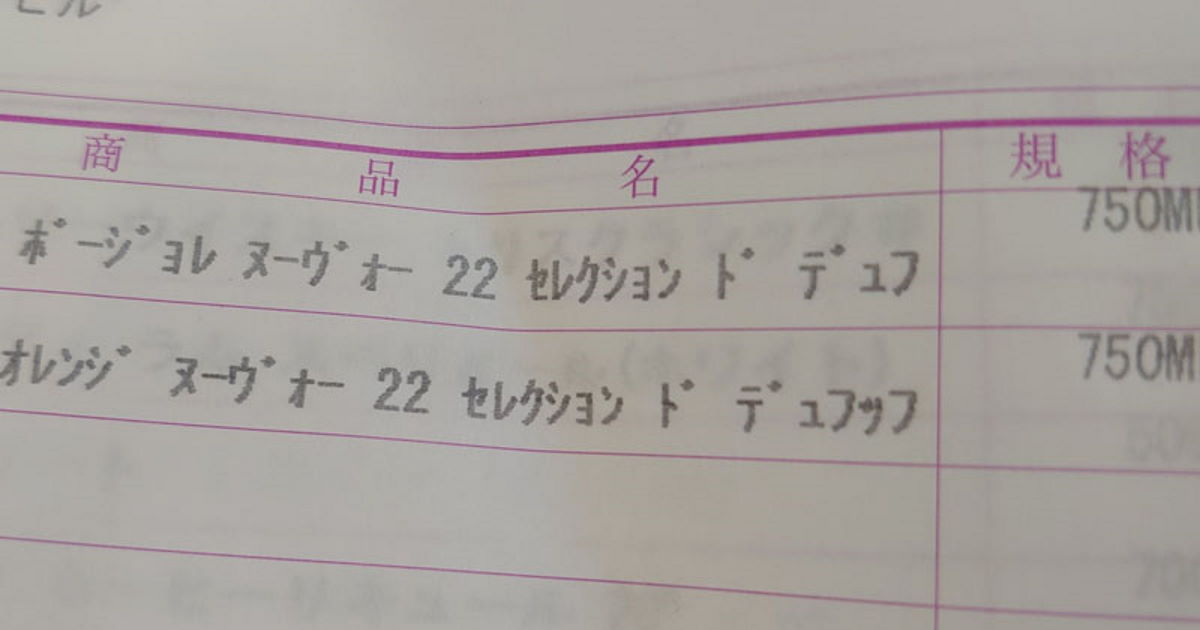 商品名 規格
ﾎﾞｰｼﾞﾖﾚ ﾇｰｳﾞｫｰ 22 ｾﾚｸｼｮﾝ ﾄﾞ ﾃﾞｭﾌ 750M
ｵﾚﾝｼﾞ ﾇｰｳﾞｫｰ 22 ｾﾚｸｼｮﾝ ﾄﾞ ﾃﾞｭﾌｯﾌ 750M